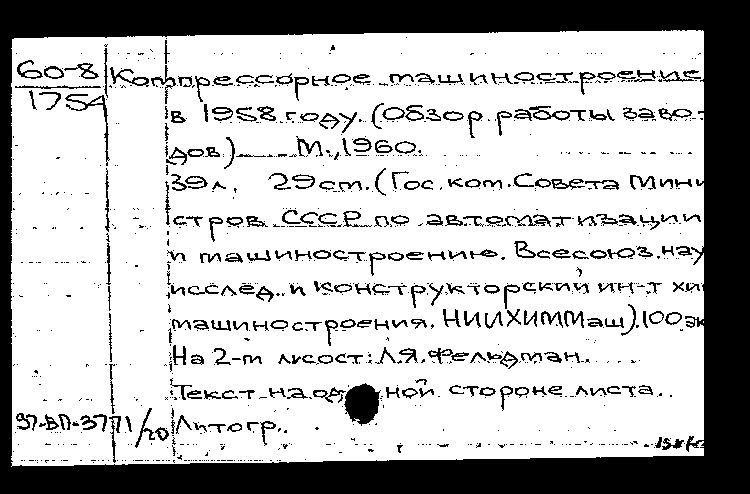 60-8 Компрессорное машиностроение
1754
в 1958 году. (Обзор работы заво-
дов) М., 1960.
39 л. 29 см. (Гос. ком. Совета Мини
стров СССР по автоматизации
и машиностроению. Всесоюз. науч
исслед. и конструкторский ин-т хи
машиностроения. НИИХИММаш). 100 эк
На 2-м л. сост: Л.Я. Фельдман.
Текст на одной стороне листа.
37-ВП-3771/20 Литогр.